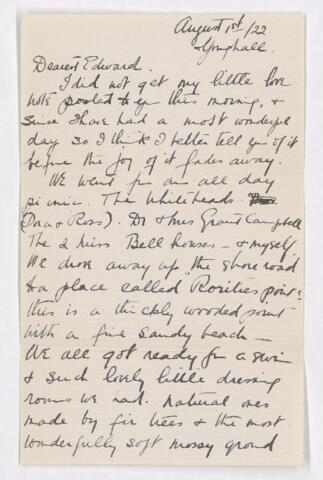 August 1st/22
Dearest Edward.
I did not get my little love
note posted to you this morning, &
since I have had a most wonderful
day so I think I better tell you of it
before the joy of it fades away.
We went for an all day
picnic. The Whiteheads
(Ina & Ross). Dr & Mrs Grant Campbell
The 2 Miss Bell houses - & myself
We drove away up "the shore road"
to a place called
this is a thickly wooded point
with a fine sandy beach -
We all got ready for a swim
& such lovely little dressing
rooms we had. Natural ones
made by fir trees & the most
wonderfully soft mossy ground